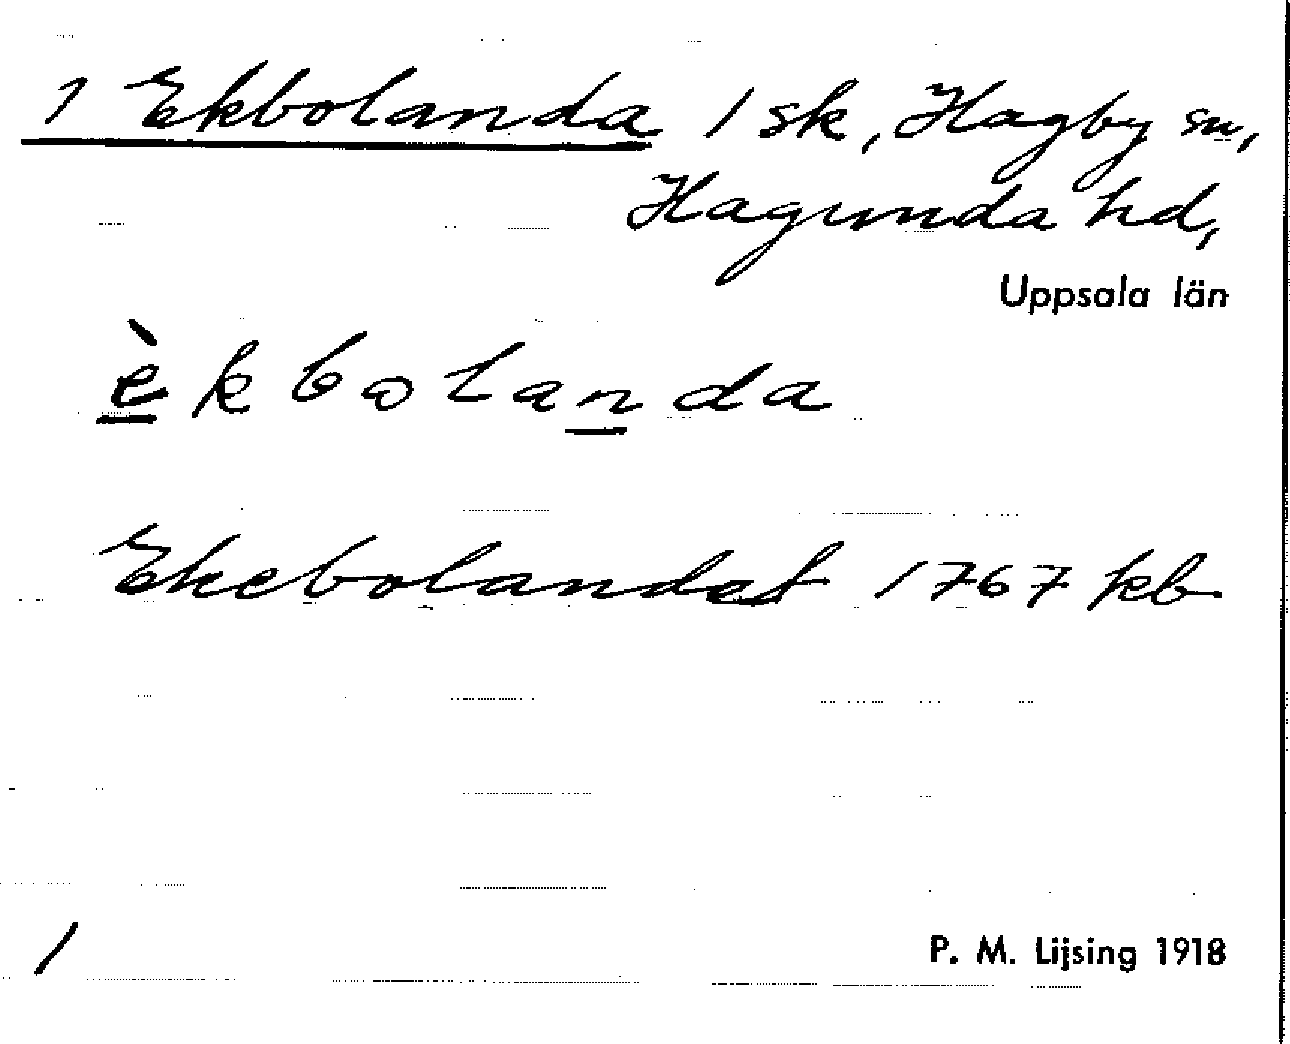 1 Ekbolanda 1 sk, Hagby sn,
Hagunda hd,
Uppsala län
èkbolanda
Ekebolandet 1767 kb
1
P. M. Lijsing 1918